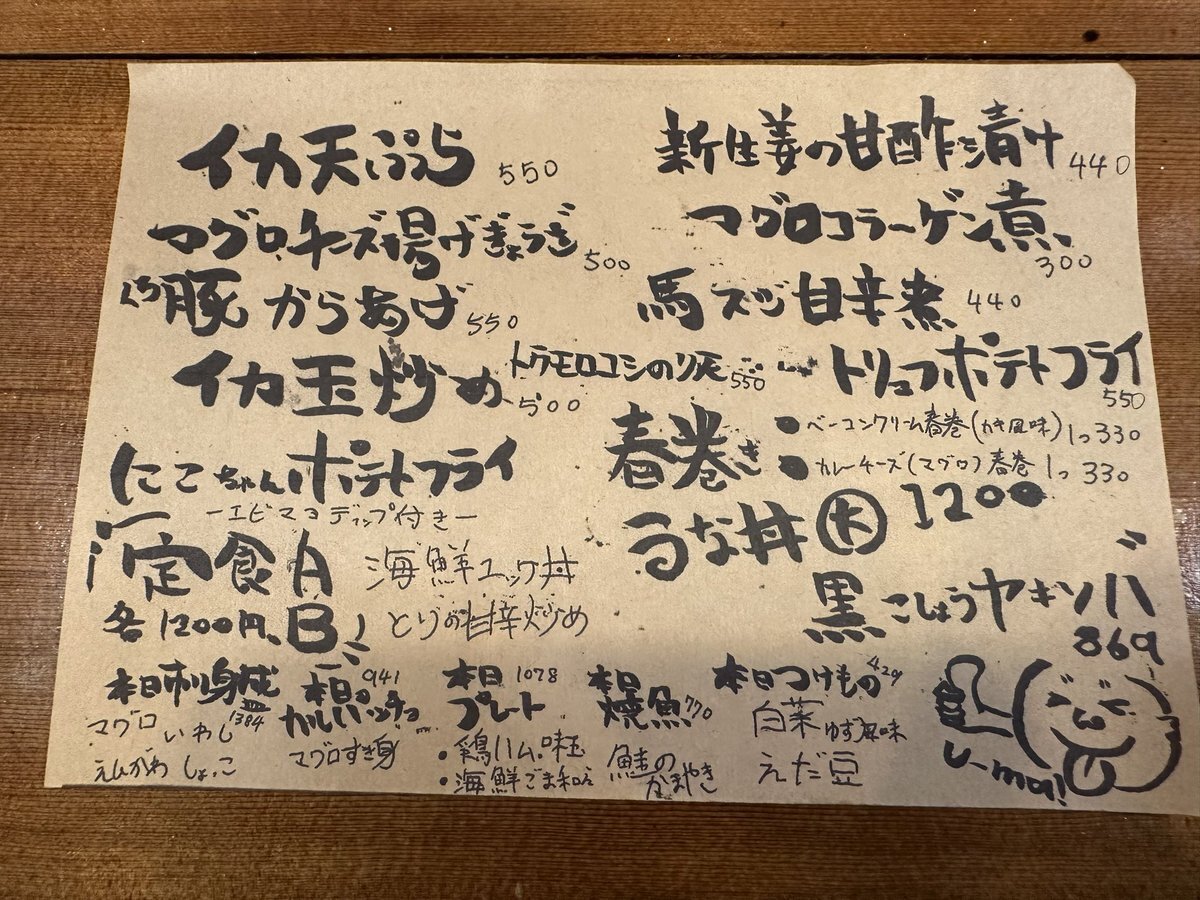 イカ天ぷら 550
マグロ、チーズ揚げぎょうざ 500
豚からあげ 550
イカ玉炒め 500
にこちゃんポテトフライ
ーエビマヨディップ付きー
定食A 海鮮ユッケ丼
各1200円、B とりの甘辛炒め
新生姜の甘酢漬け 440
マグロコラーゲン煮 300
馬スジ甘辛煮 440
トウモロコシの 550
トリュフポテトフライ 550
春巻き
●ベーコンクリーム春巻(カキ風味) 1つ330
●カレーチーズ(マグロ)春巻 1つ330
うな丼 大 1200
黒こしょうヤキソバ
869
本日刺身盛 1384
マグロ いわし
えんがわ しょっこ
本日カルパッチョ 941
マグロすき身
本日プレート 1078
・鶏ハム・味玉
・海鮮ごま和え
本日焼魚 770
鮭のかまやき
本日つけもの 429
白菜ゆず風味
えだ豆
U-ma!